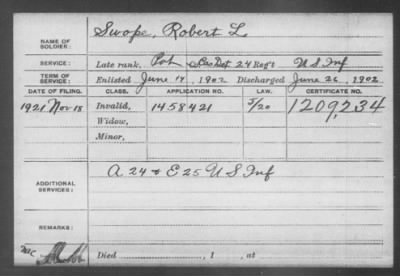 NAME OF SOLDIER: Swope, Robert L.
SERVICE: Late rank, Det 24 Reg't U S Inf
TERM OF SERVICE: Enlisted June 1902 Discharged June 26, 1902
DATE OF FILING. CLASS. APPLICATION NO. LAW. CERTIFICATE NO.
1921 Nov 18 Invalid, 1458421 5/20 1209,234
Widow,
Minor,
ADDITIONAL SERVICES: A 24 & E 25 U S Inf
REMARKS:
Died , 1 , at